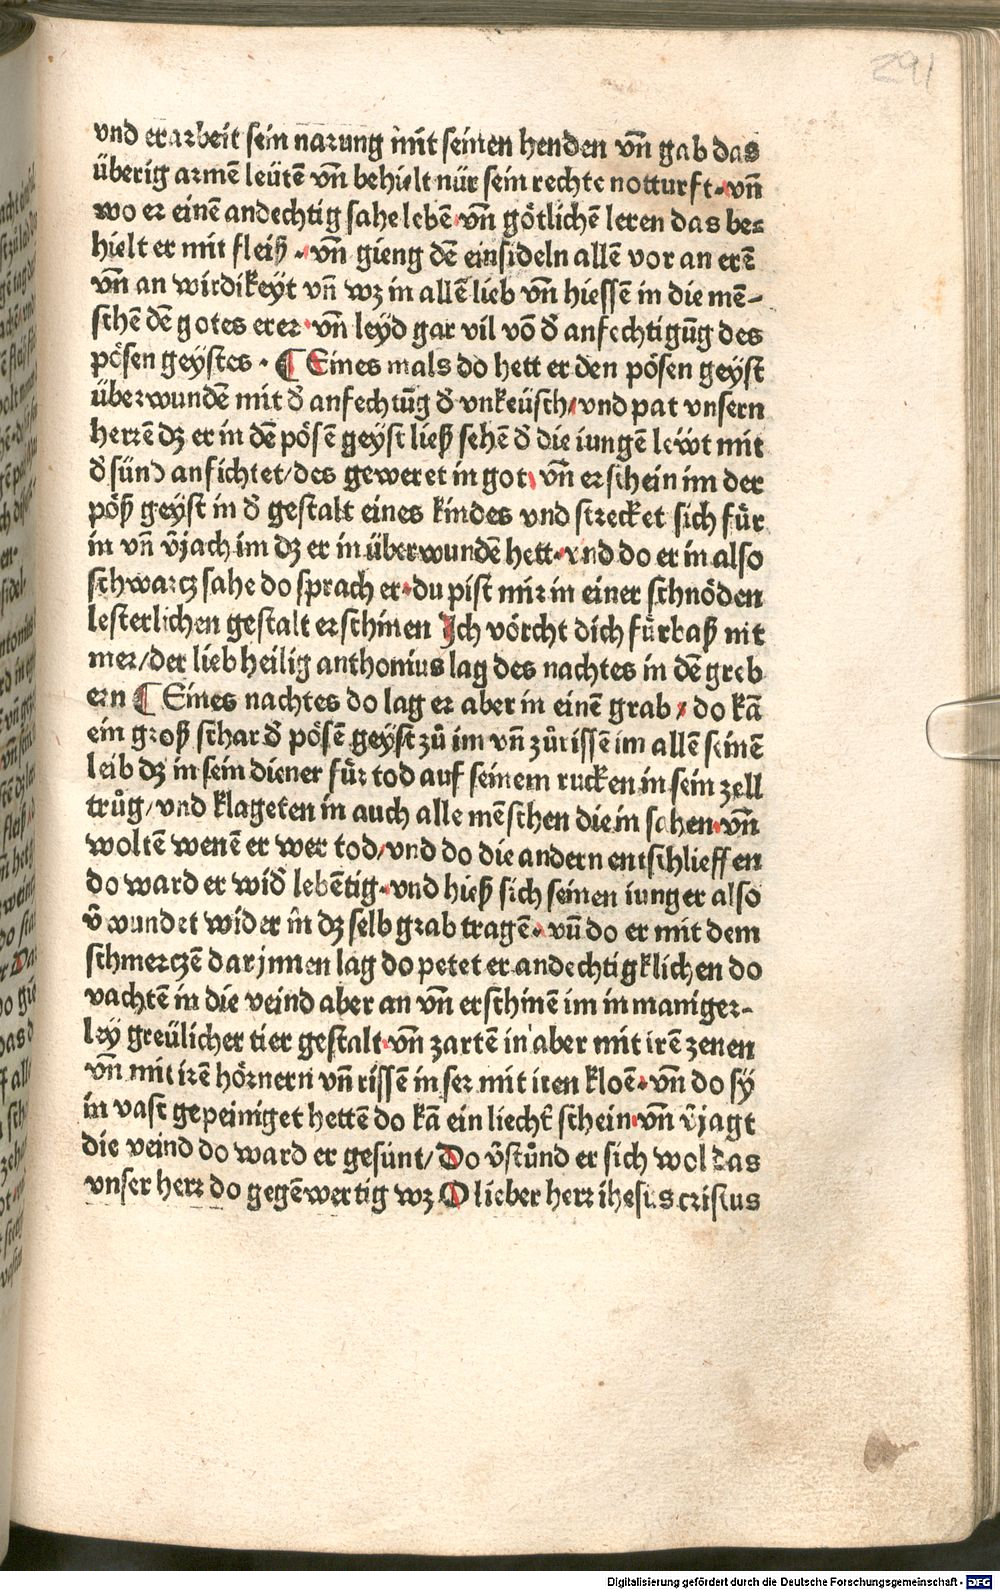 291
vnd erarbeit sein narung mit seinen henden vñ gab das
überig armē leütē vñ behielt nür sein rechte notturft· vñ
wo er einē andechtig sahe lebē· vñ götlichē leren das be⸗
hielt er mit fleiß · vñ gieng dē einsideln allē vor an erē
vñ an wirdikeyt vñ wz in allē lieb vñ hiessē in die mē⸗
schē dē gotes erer· vñ leyd gar vil vō d̄ anfechtigūg des
pösen geystes · ¶ Eines mals do hett er den pösen geyst
überwundē mit d̄ anfechtūg d̄ vnkeüsch/ vnd pat vnsern
herrē dz er in dē pösē geyst ließ sehē d̄ die iungē lewt mit
d̄ sünd anfichtet/ des geweret in got/ vñ erschein im der
pöß geyst in d̄ gestalt eines kindes vnd strecket sich für
in vñ v̄jach im dz er in überwundē hett· vnd do er in also
schwarcz sahe do sprach er· du pist mir in einer schnöden
lesterlichen gestalt erschinen Ich vörcht dich fürbaß nit
mer/ der lieb heilig anthonius lag des nachtes in dē greb
ern ¶ Eines nachtes do lag er aber in einē grab / do kā
ein groß schar d̄ pösē geyst zů im vñ zůrissē im allē seinē
leib dz in sein diener für tod auf seinem rucken in sein zell
trůg/ vnd klageten in auch alle mēschen die in sahen· vñ
woltē wenē er wer tod/ vnd do die andern entschlieffen
do ward er wid̄ lebētig· vnd hieß sich seinen iunger also
v̄wundet wider in dz selb grab tragē· vñ do er mit dem
schmerczē darjnnen lag do petet er andechtigklichen do
vachtē in die veind aber an vñ erschinē im in maniger⸗
ley greülicher tier gestalt· vñ zartē in aber mit irē zenen
vñ mit irē hörnern vñ rissē in ser mit iren kloē· vñ do sy
in vast gepeiniget hettē do kā ein liecht̄ schein· vñ v̄jagt
die veind do ward er gesunt/ Do v̄stůnd er sich wol das
vnser herr do gegēwertig wz O lieber herr ihesus cristus
Digitalisierung gefördert durch die Deutsche Forschungsgemeinschaft - DFG